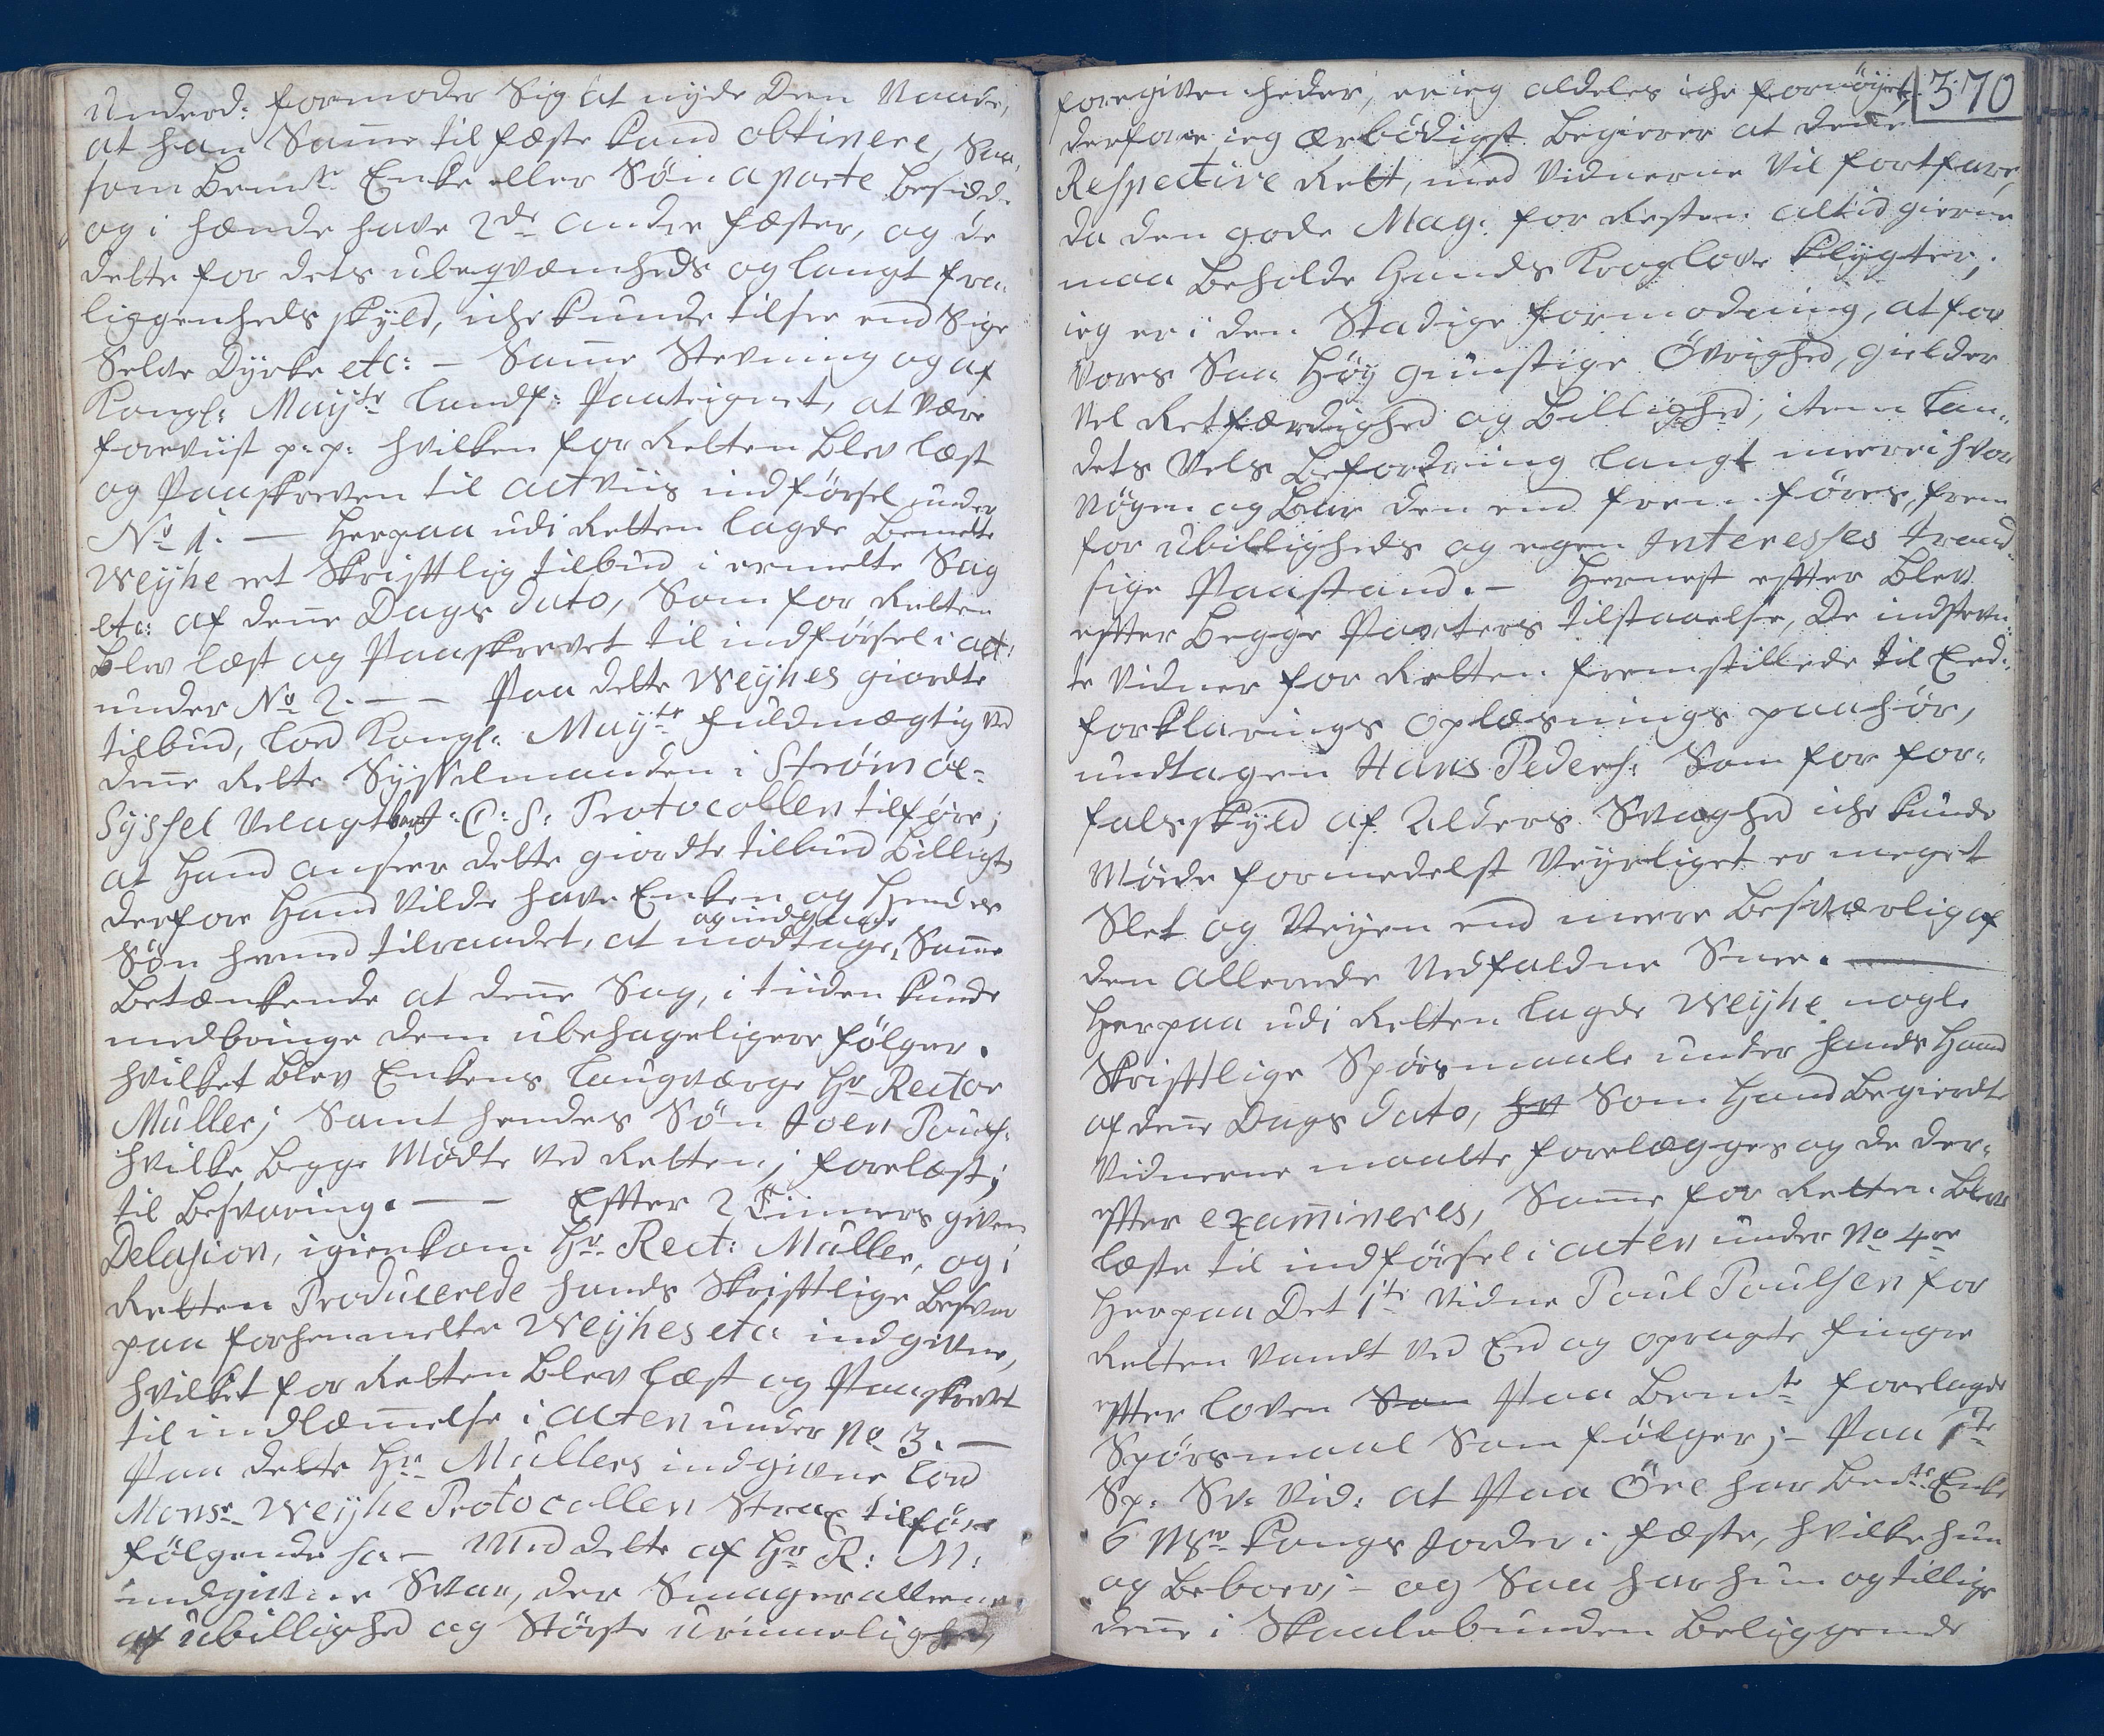 Underd: formoder Sig at nyde Den Naade,
at han Samme til fæste kand obtinere, Saa-
som Bemte Enke eller Søn aparte besidde
og i hænde have 2de andre fæster, og de
dette for dets ubeqvæmheds og langt fra-
liggenheds skyld, iche kunde tilsee end Sige
Selve Dyrke etc: – Samme Stevning og af
Kongl: Mayts landf: Paateignet, at være
foreviist p:p: hvilken for Retten blev læst
og Paaskreven til actviis indførsel under
No 1. — Herpaa udi Retten lagde Bemelte
Weyhe eet Skrifftlig tilbud i ermelte Sag
etc: af denne Dags dato, Som for Retten
blev læst og Paaskrevet til indførsel i act:
under No 2. — — Paa dette Weyhes giordte
tilbud, lod Kongl: Mayts fuldmægtig ved
denne Rette Sysselmanden i Strømøe-
Syssel Velagtb: J: C: S: Protocollen tilføre;
at Hand anseer dette giordte tilbud billigt,
derfore Hand Vilde have Enken og Hendes
og indgaae
Søn hermed tilraadet, at modtage, Samme
betænkende at denne Sag, i tiiden kunde
medbringe dem ubehageligere følger.
hvilket blev Enkens laugværge Hr Rector
Müller; Samt hendes Søn Joen Pouls:
hvilke begge Mødte ved Retten; forelæst;
til besvaring. — Effter 2 Tiimers given
Delasion, igienkom Hr. Rect: Müller, og i
Retten Producerede hands Skrifftlige besvar
paa forhenmelte Weyhes etc: indgivne,
hvilket for Retten blev læst og Paaskrevet
til indlemmelse i acten under No 3. —
Paa dette Hr. Müllers indgivne lod
Monsr. Weyhe Protocollen Strax tilføre
følgende sa: – Med dette af Hr R: M:
indgivne Svar, der Smager alleene
af ubillighed og Største urimelighed,
370
foregivenheder, er ieg aldeles iche fornøyet,
derfore ieg ærbødigst begierer at denne
Respective Rett, med Vidnerne Vil fortfare,
da den gode Mag: for Resten altid gierne
maa beholde hands Kroglove Klygter,
ieg er i den Stadige formodning, at for
Vores Saa Høy gunstige Øvrighed, gielder
Vel Retfærdighed og billighed, item Lan-
dets Vels befordring langt meere i hvor
nøgen og bar den end frem føres, frem
for ubilligheds og egen Interesses trand-
sige Paastand. – Hernest effter blev
effter begge Parters tilstaaelse, De indstevn-
te Vidner for Retten fremstillede til Eed-
forklarings oplæsnings paahør,
undtagen Hans Peders: Som for for-
falsskyld af Alders Svaghed iche kunde
Møde formedelst Veyrliget er meget
Slet og Veyen end meere besværlig af
den allerede Nedfaldne Snee. —
Herpaa udi Retten lagde Weyhe nogle
Skrifftlige Spørsmaale under hands Haand
af denne Dags dato, hv Som Hand begierdte
Vidnerne maatte forelægges og de der-
effter examineres, Samme for Retten blev
læste til indførsel i acten under No 4re
Herpaa Det 1te Vidne Poul Poulsen for
Retten vandt ved Eed og opragte fingre
effter loven Som Paa Bemte forelagde
Spørsmaal Som følger; – Paa 1te
Sp: Sv: Vid: at Paa Øre har bemte Enke
6 Mrk kongs Jorder i fæste, hvilke hun
og beboer; – og Saa har hun og tillige
denne i Skaalebunden beliggende